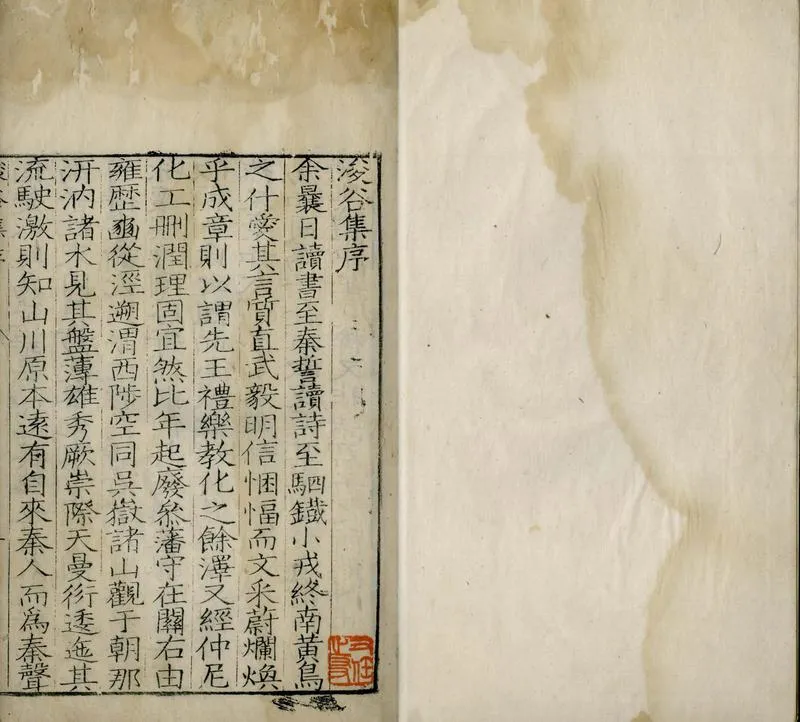 浚谷集序
余曩日讀書至秦誓讀詩至駟鐵小戎終南黃鳥
之什愛其言質直武毅明信悃愊而文采蔚爛煥
乎成章則以謂先王禮樂教化之餘澤又經仲尼
化工刪潤理固宜然比年起廢叅藩守在關右由
雍歷豳從涇遡渭西陟空同吳嶽諸山觀于朝那
汧汭諸水見其盤薄雄秀厥崇際天曼衍逶迤其
流駛激則知山川原本遠有自來秦人而爲秦聲